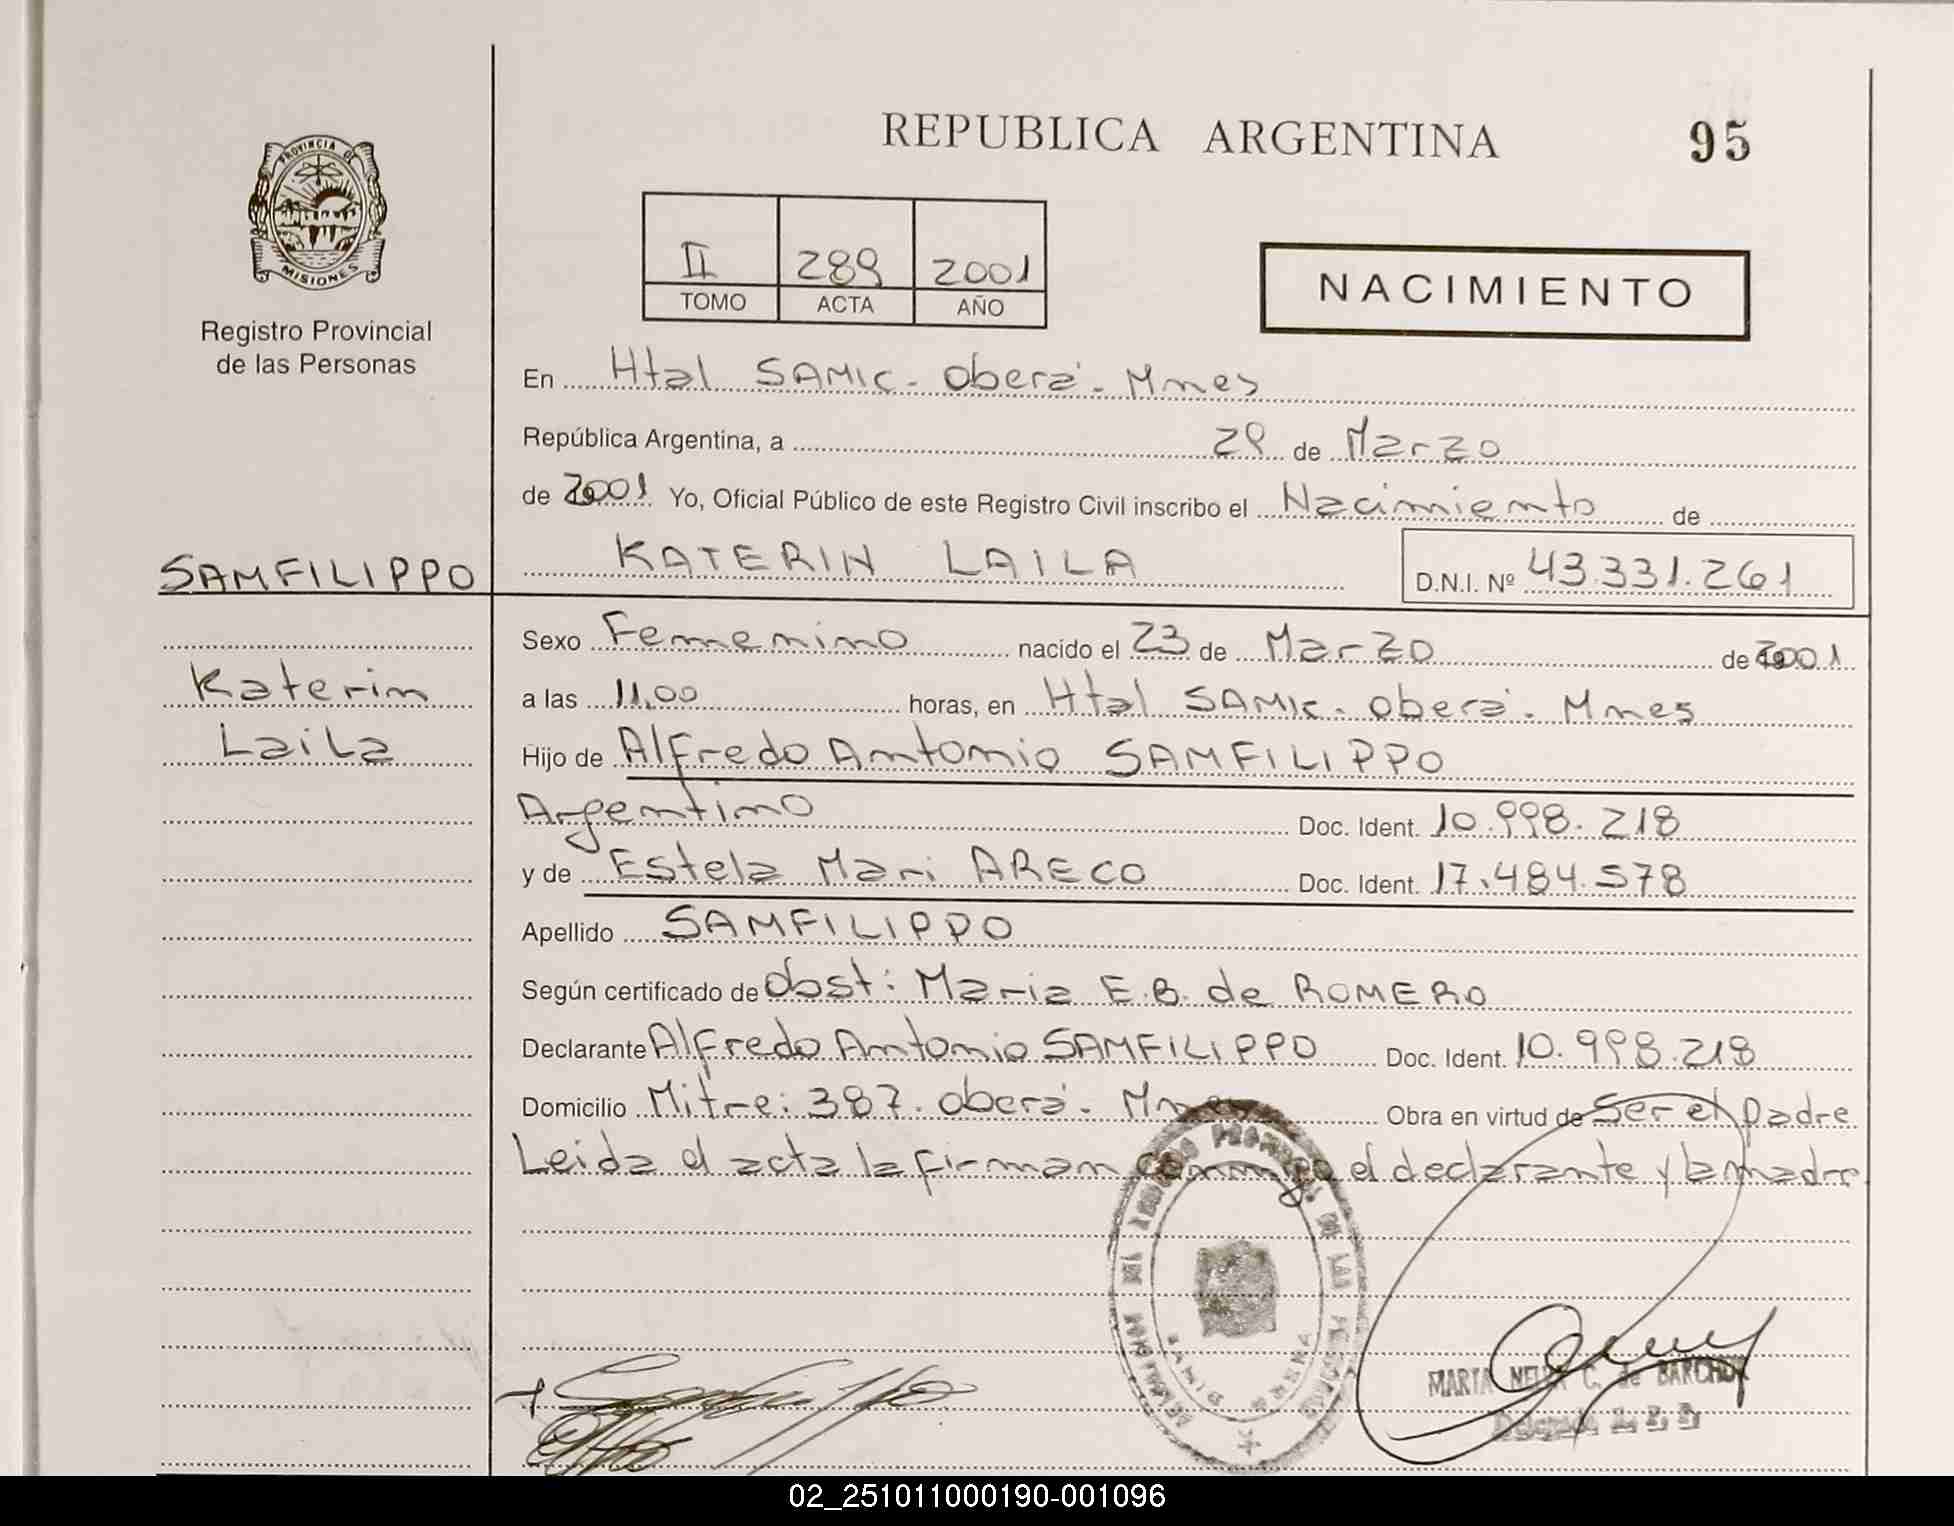 REPUBLICA ARGENTINA
95
PROVINCIA DE
MISIONES
Registro Provincial
de las Personas
II 289 2001
TOMO ACTA AÑO
NACIMIENTO
En Htal SAMIC. Oberá. Mnes
República Argentina, a 29 de Marzo
de 2001 Yo, Oficial Público de este Registro Civil inscribo el Nacimiento de
SAMFILIPPO
KATERIN LAILA
D.N.I. Nº 43.331.261
Sexo Femenino nacido el 23 de Marzo de 2001
Katerin
a las 11,00 horas, en Htal SAMIC. Oberá. Mnes
Laila
Hijo de Alfredo Antonio SAMFILIPPO
Argentino Doc. Ident. 10.998.218
y de Estela Mari ARECO Doc. Ident. 17.484.578
Apellido SAMFILIPPO
Según certificado de Obst: Maria E.B. de ROMERO
Declarante Alfredo Antonio SAMFILIPPO Doc. Ident. 10.998.218
Domicilio Mitre: 387. Oberá. Mnes Obra en virtud de Ser el padre
Leida el acta la firman conmigo el declarante y la madre
MARTA C. de
02_251011000190-001096